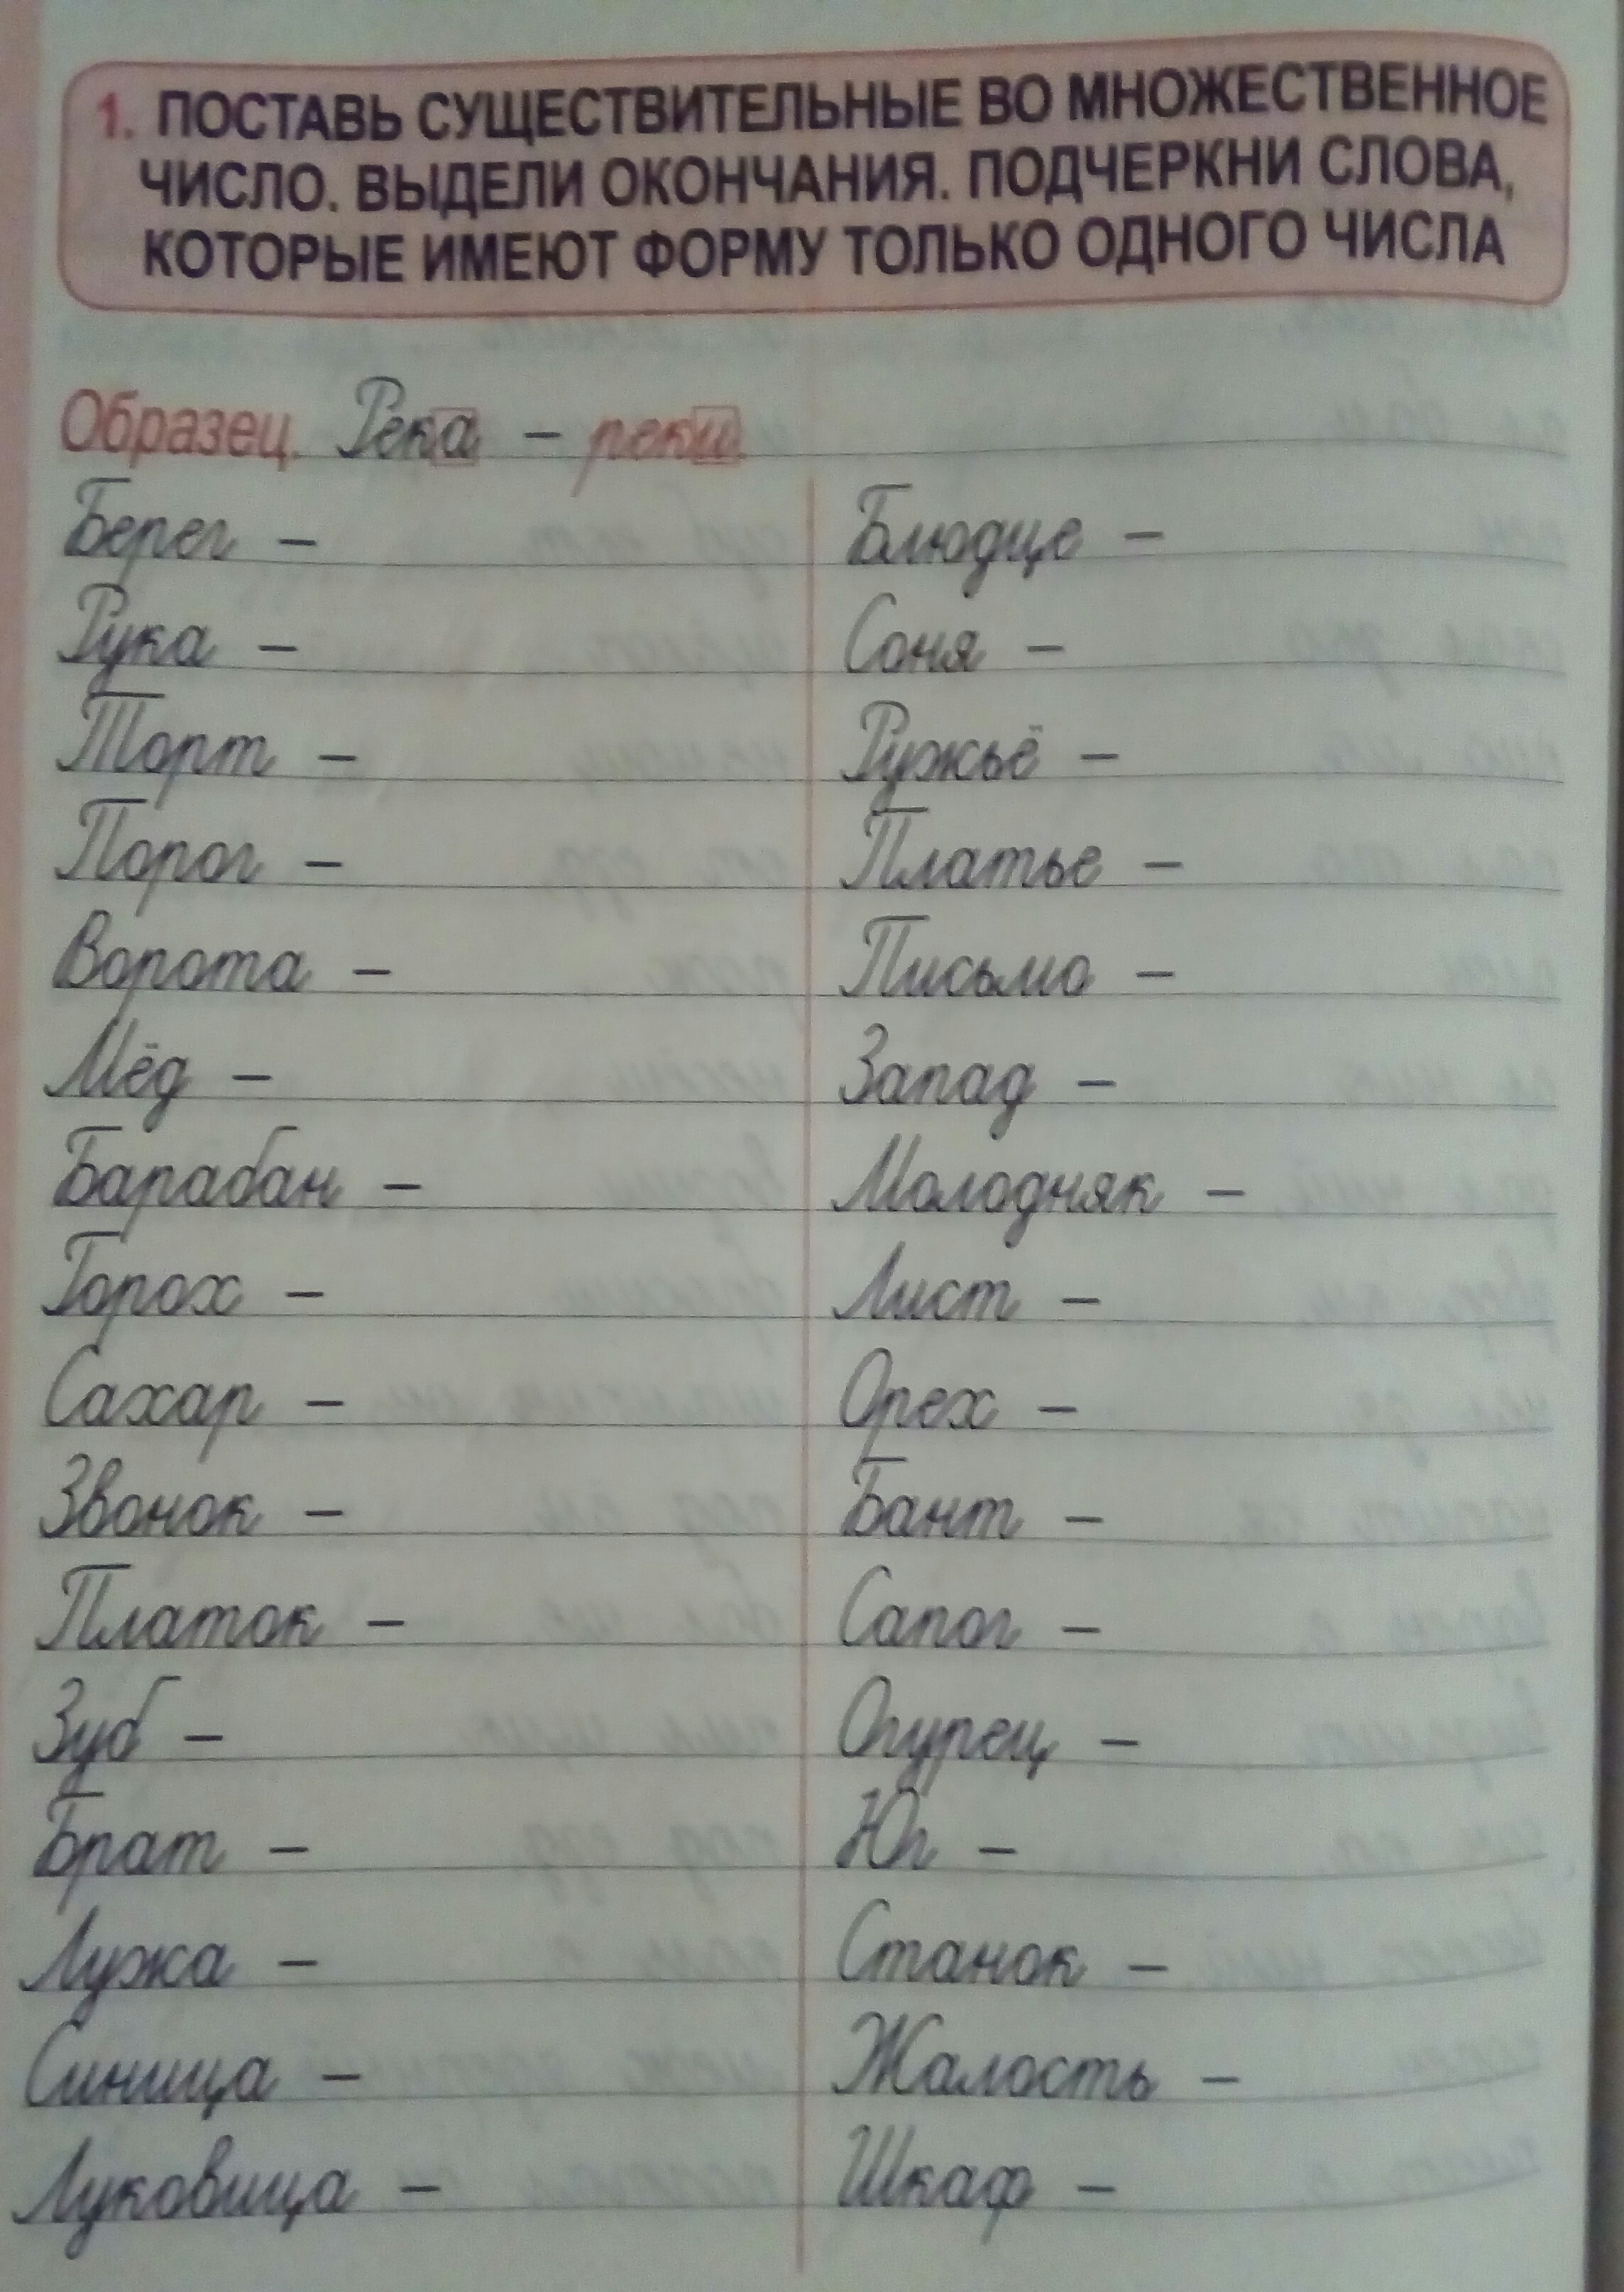 1. ПОСТАВЬ СУЩЕСТВИТЕЛЬНЫЕ ВО МНОЖЕСТВЕННОЕ
ЧИСЛО. ВЫДЕЛИ ОКОНЧАНИЯ. ПОДЧЕРКНИ СЛОВА,
КОТОРЫЕ ИМЕЮТ ФОРМУ ТОЛЬКО ОДНОГО ЧИСЛА
Образец. Река – реки.
Берег –
Рука –
Торт –
Порог –
Ворота –
Мёд –
Барабан –
Горох –
Сахар –
Звонок –
Платок –
Зуб –
Брат –
Лужа –
Синица –
Луковица –
Блюдце –
Соня –
Ружьё –
Платье –
Письмо –
Запад –
Молодняк –
Лист –
Орех –
Бант –
Сапог –
Огурец –
Юг –
Станок –
Жалость –
Шкаф –